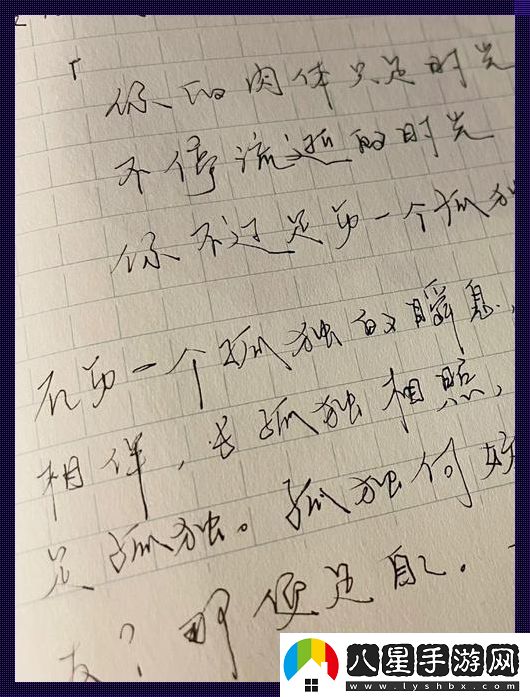 「
你的肉体只是时光
不停流逝的时光
你不过是每一个孤独
在每一个孤独的瞬息,
相伴,与孤独相照,
是孤独。孤独何好
友?那便是酖.
八星手游网
www.lyshbx.com